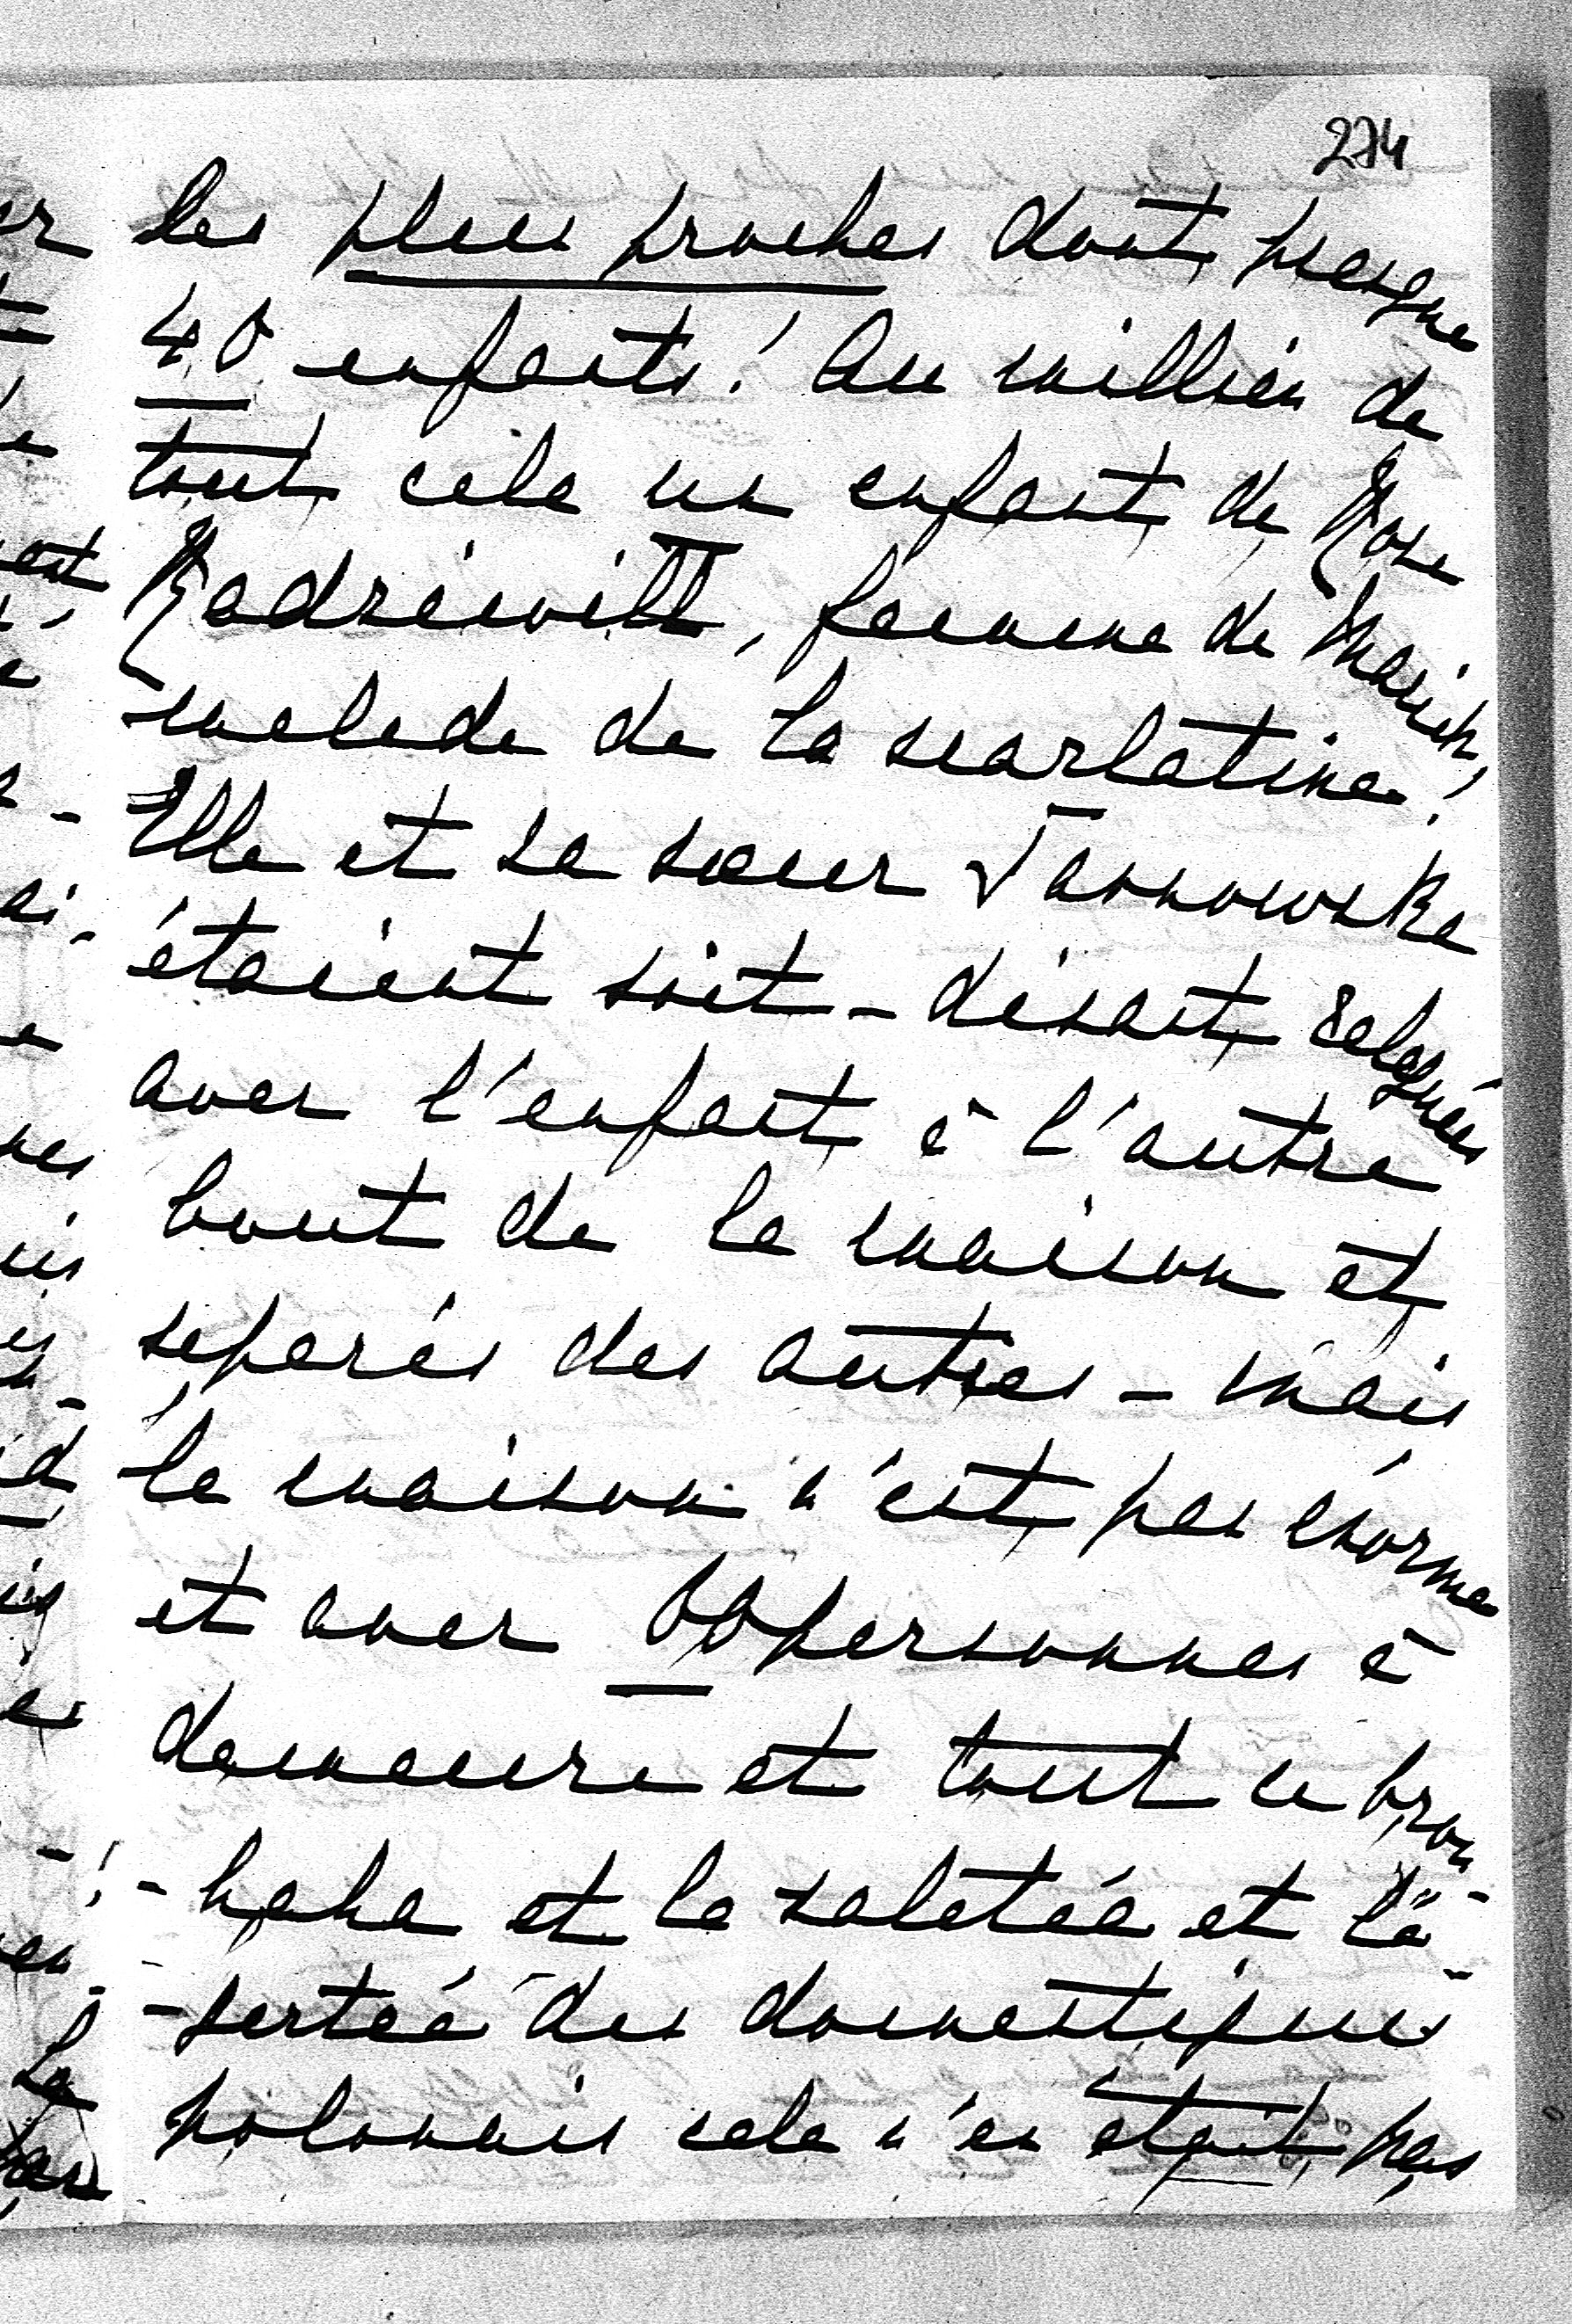 274
les plus proches dont presque
40 enfants! Au millieu de
tout cela un enfant de Rose
Radziwill, femme de Maciek,
malade de la scarlatine!
Elle et sa sœur Tarnowska
étaient soit-disant releguées
avec l'enfant à l'autre
bout de la maison et
separés des autres - mais
la maison n'est pas enorme
et avec 60 personnes à
demeure et tout ce brou-
-haha et la saletée et l'a-
-pertée des domestiques
polonais cela n'en était pas